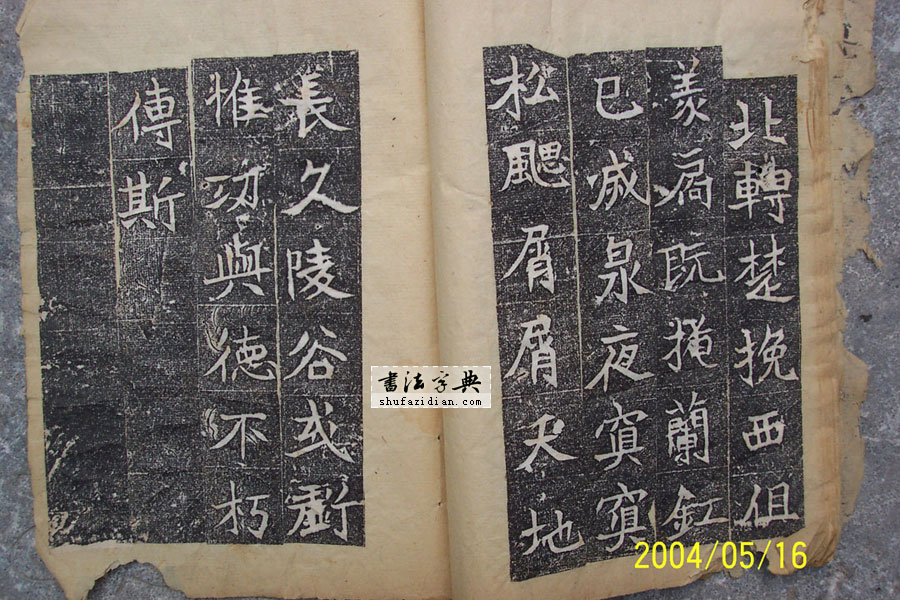 北轉楚挽西徂
羨扃既掩蘭釭
已烕泉夜冥冥
松飔屑屑天地
長久陵谷或虧
惟功與德不朽
傳斯
書法字典
shufazidian.com
2004/05/16